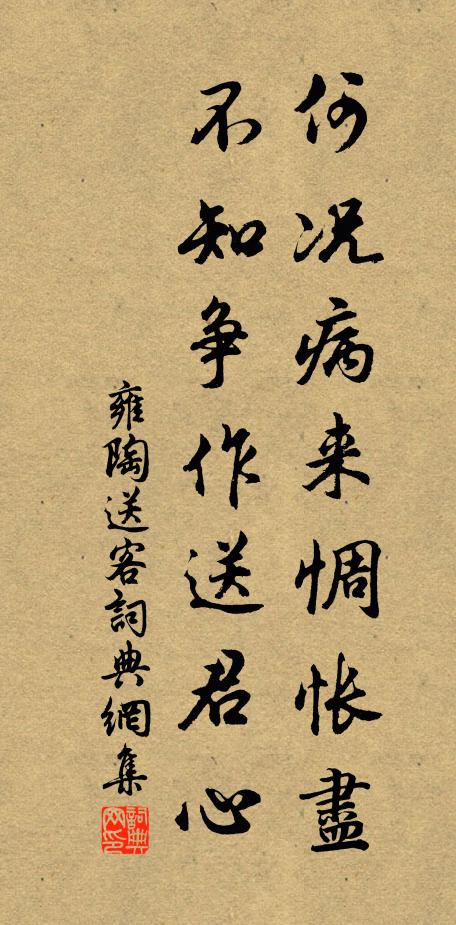 何况病来惆怅盡
不知争作送君心
雍陶送客詞典網集
詞典网印